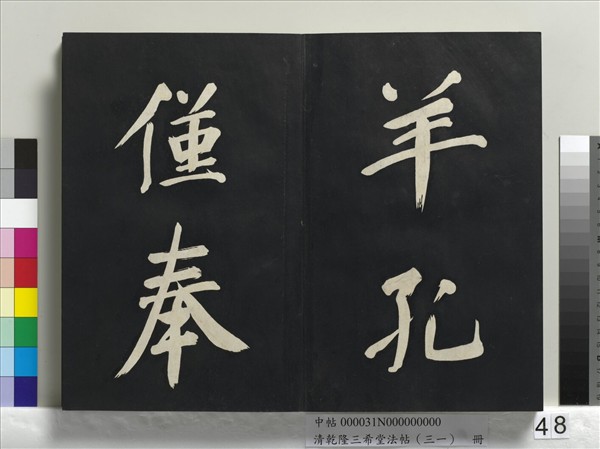 羊孔
僅奉
中帖 000031N000000000
清乾隆三希堂法帖（三一） 冊
48